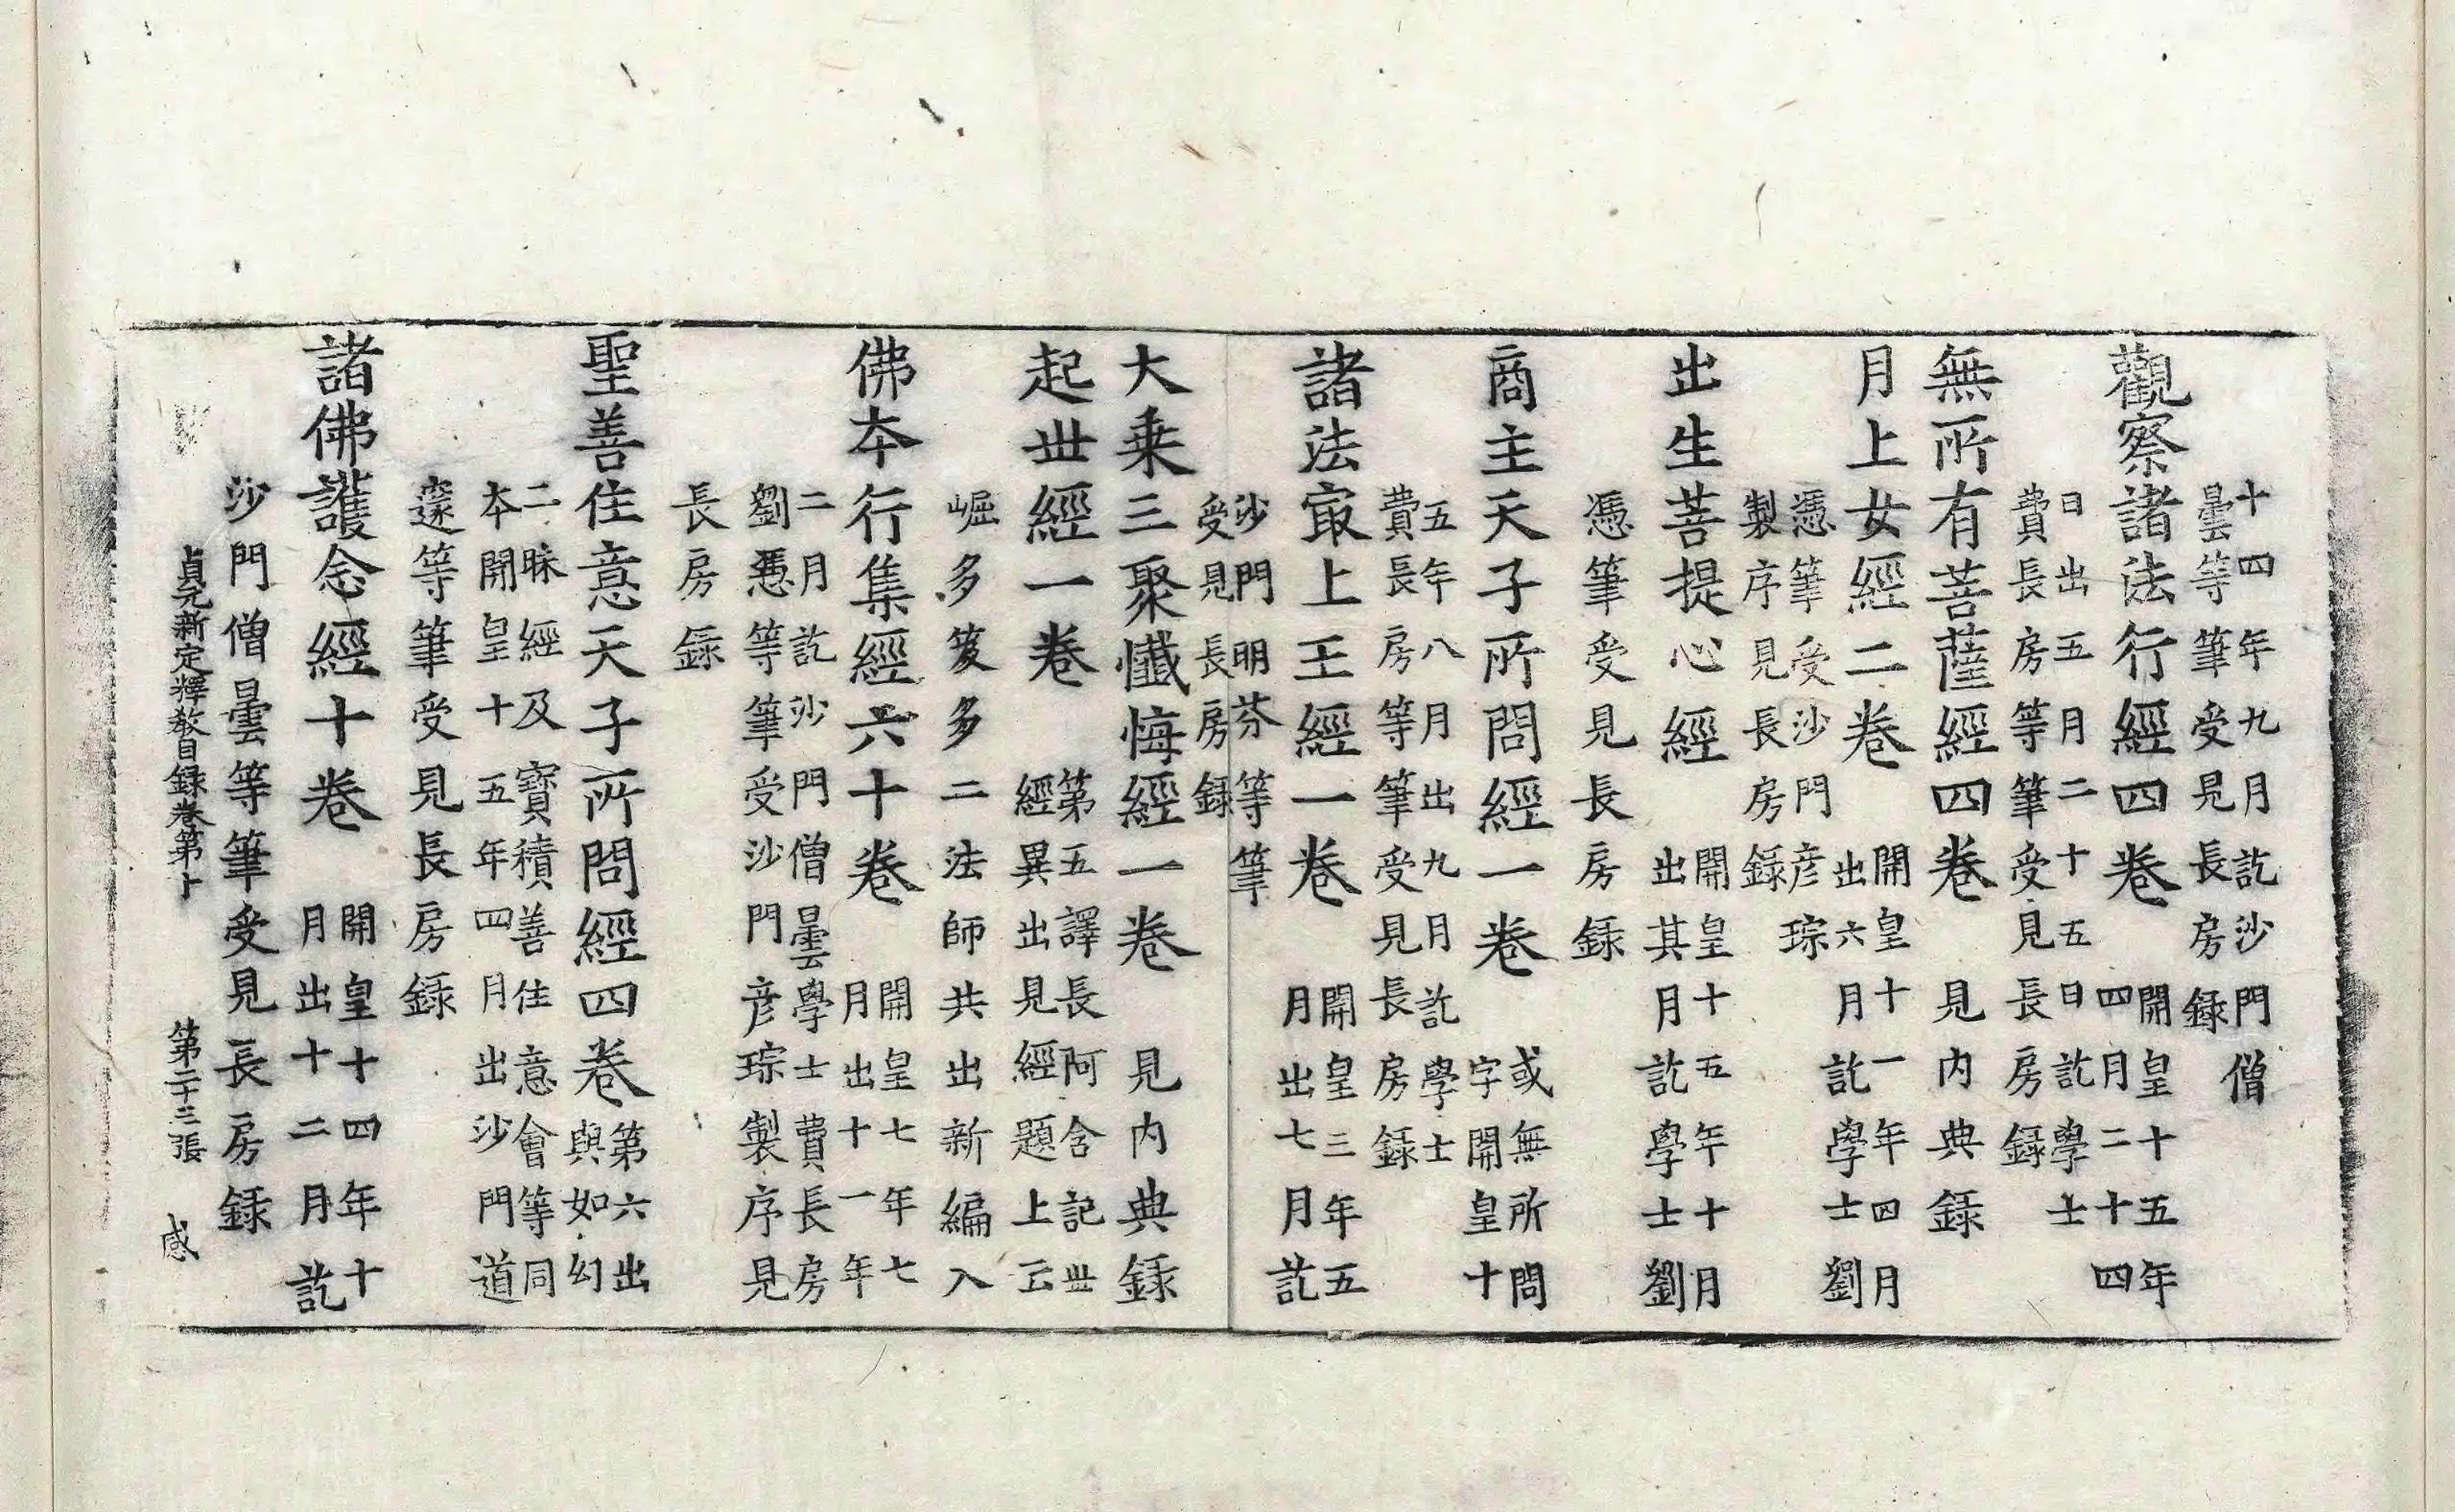 十四年九月訖沙門僧
曇等筆受見長房錄
觀察諸法行經四卷
開皇十五年
四月二十四
日出五月二十五日訖學士
費長房等筆受見長房錄
無所有菩薩經四卷 見內典錄
月上女經二卷
開皇十一年四月
出六月訖學士劉
憑筆受沙門彦琮
製序見長房錄
出生菩提心經
開皇十五年十月
出其月訖學士劉
憑筆受見長房錄
商主天子所問經一卷
或無所問
字開皇十
五年八月出九月訖學士
費長房等筆受見長房錄
諸法㝡上王經一卷
開皇三年五
月出七月訖
沙門明芬等筆
受見長房錄
大乗三聚懺悔經一卷 見內典錄
起丗經一卷
第五譯長阿含記丗
經異出見經題上云
崛多笈多二法師共出新編入
佛夲行集經六十卷
開皇七年七
月出十一年
二月訖沙門僧曇學士費長房
劉憑等筆受沙門彦琮製序見
長房錄
聖善住意天子所問經四卷
第六出
與如幻
二昧經及寶積善住意會等同
夲開皇十五年四月出沙門道
邃等筆受見長房錄
諸佛護念經十卷
開皇十四年十
月出十二月訖
沙門僧曇等筆受見長房錄
貞元新定釋教目錄卷第十 第二十三張 感